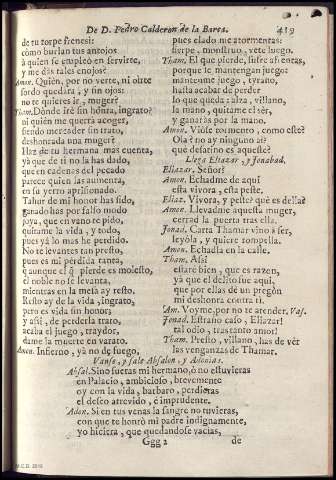 De D. Pedro Calderon de la Barca. 419
de tu torpe frenesi:
como burlan tus antojos
à quien se empleò en servirte,
y me dàs tales enojos?
Amn. Quien, por no verte, ni oirte
sordo quedàra, y sin ojos:
no te quieres ir, muger?
Tham. Donde irè sin honra, ingrato?
ni quien me querrà acoger,
siendo mercader sin trato,
deshonrada una muger?
Haz de tu hermana mas cuenta,
yà que de ti no la has dado,
que en cadenas del pecado
parece quien las aumenta,
en su yerro aprisionado.
Tahur de mi honor has sido,
ganado has por falso modo
joya, que en vano te pido,
quitame la vida, y todo,
pues yà lo mas he perdido.
No te levantes tan presto,
pues es mi pèrdida tanta,
q̃ aunque el q̃ pierde es molesto,
el noble no le levanta,
mientras en la mesa ay resto.
Resto ay de la vida, ingrato,
pero es vida sin honra
y assi, de perderla trato,
acaba el juego, traydor,
dame la muerte en varato.
Amn. Infierno, yà no de fuego,
pues elado me atormentas:
sierpe, monstruo, vete luego.
Tham. El que pierde, sufre afrentas,
porque le mantengan juego:
mantenme juego, tyrano,
hasta acabar de perder
lo que queda; alza, villano,
la mano, quitame el sèr,
y ganaràs por la mano.
Amon. Viòse tormento, como este?
Ola? no ay ninguno aì?
què desatino es aqueste?
Llega Eliazar, y Jonadab.
Eliazar. Señor?
Amon. Echadme de aqui
esta vivora, esta peste.
Eliaz. Vivora, y peste? què es della?
Amon. Llevadme aquesta muger,
cerrad la puerta tras ella.
Jonad. Carta Thamar vino à ser,
leyòla, y quiere rompella.
Amon. Echadla en la calle.
Tham. Assi
estarè bien, que es razon,
yà que el delito fue aqui,
que por ellas dè un pregon
mi deshonra contra ti.
Am. Voyme, por no te atender. Vas.
Jonad. Estraño caso, Eliazar!
tal odio, tras tanto amor!
Tham. Presto, villano, has de vèr
las venganzas de Thamar.
Vanse, y sale Absalon, y Adonias.
Absal. Sino fueras mi hermano, ò no estuvieras
en Palacio, ambicioso, brevemente
oy con la vida, barbaro, perdieras
el deseo atrevido, è imprudente.
Adon. Si en tus venas la sangre no tuvieras,
con que te honrò mi padre indignamente,
yo hiciera, que quedandose vacias,
Ggg 2 de